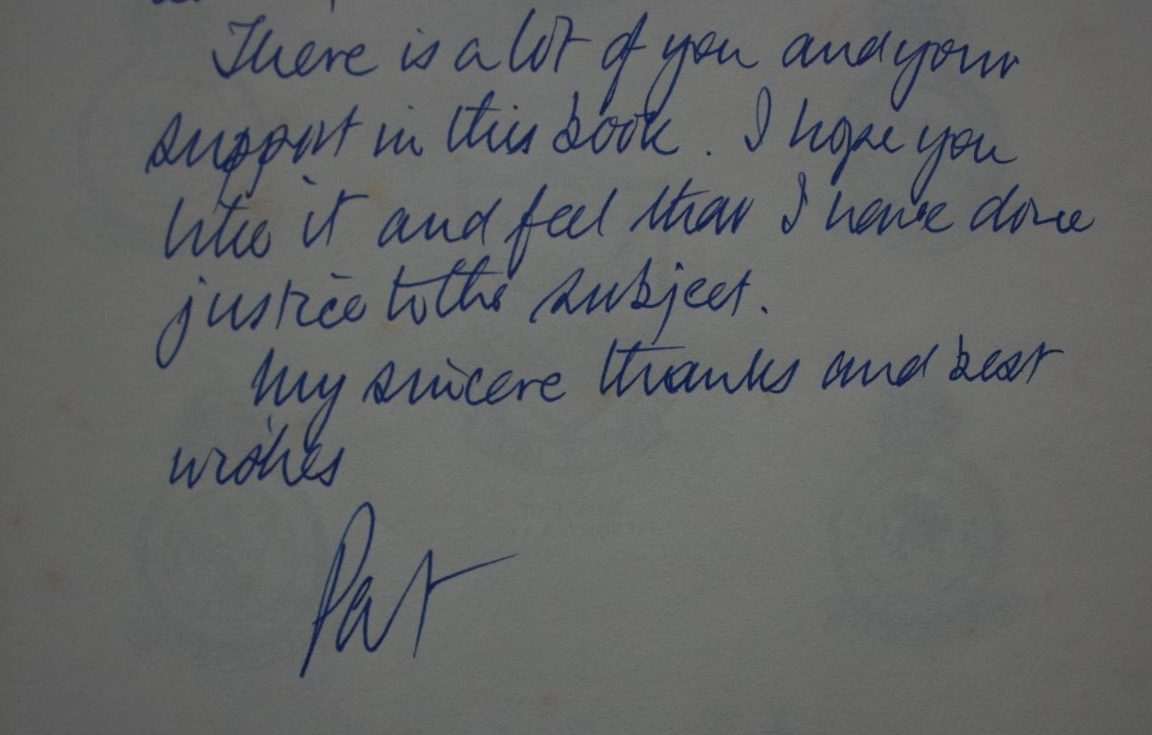 There is a lot of you and your
support in this book. I hope you
like it and feel that I have done
justice to the subject.
My sincere thanks and best
wishes
Pat